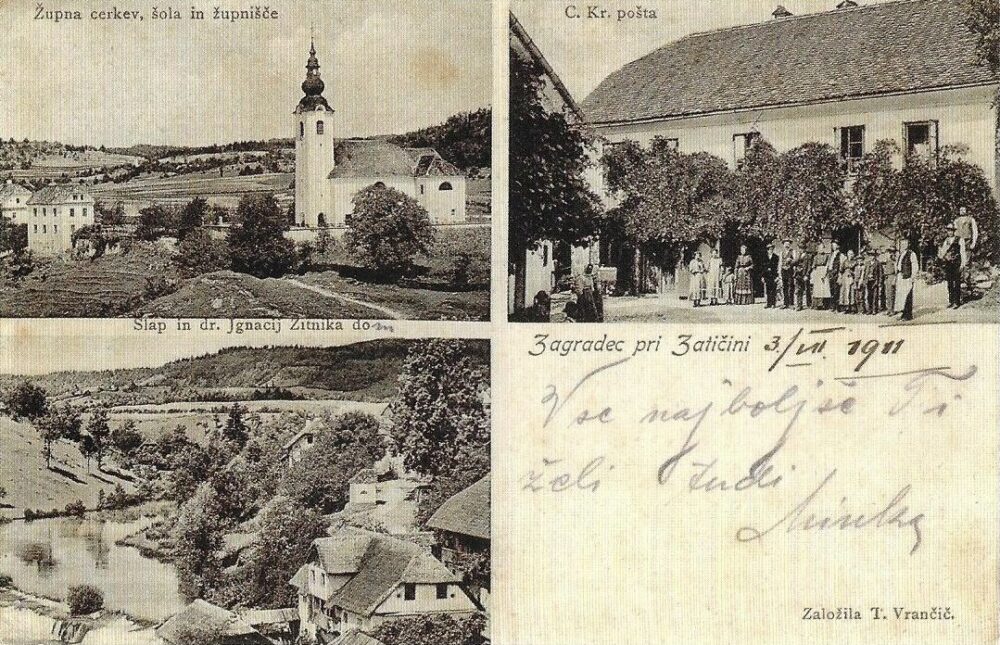 Župna cerkev, šola in župnišče
C. Kr. pošta
Slap in dr. Jgnacij Žitnika dom
Zagradec pri Zatičini 3./VII. 1911
Vse najboljše Ti
želi tudi
Minka
Založila T. Vrančič.